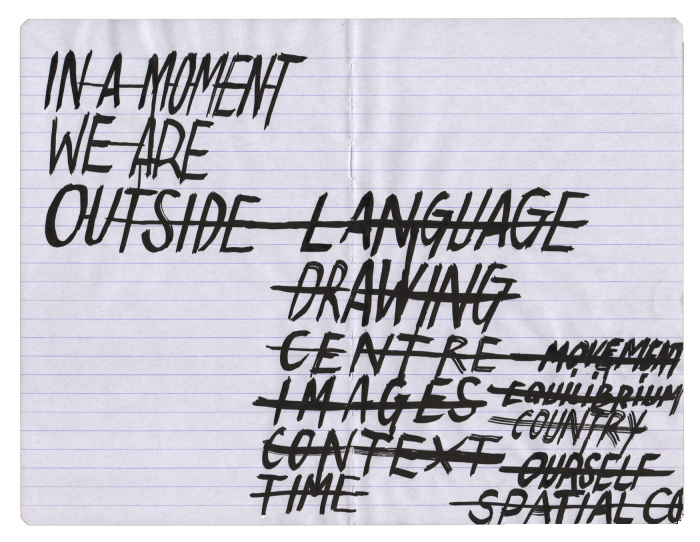 IN A MOMENT
WE ARE
OUTSIDE LANGUAGE
DRAWING
CENTRE MOVEMENT
IMAGES EQUILIBRIUM
COUNTRY
CONTEXT OURSELF
TIME SPATIAL CO